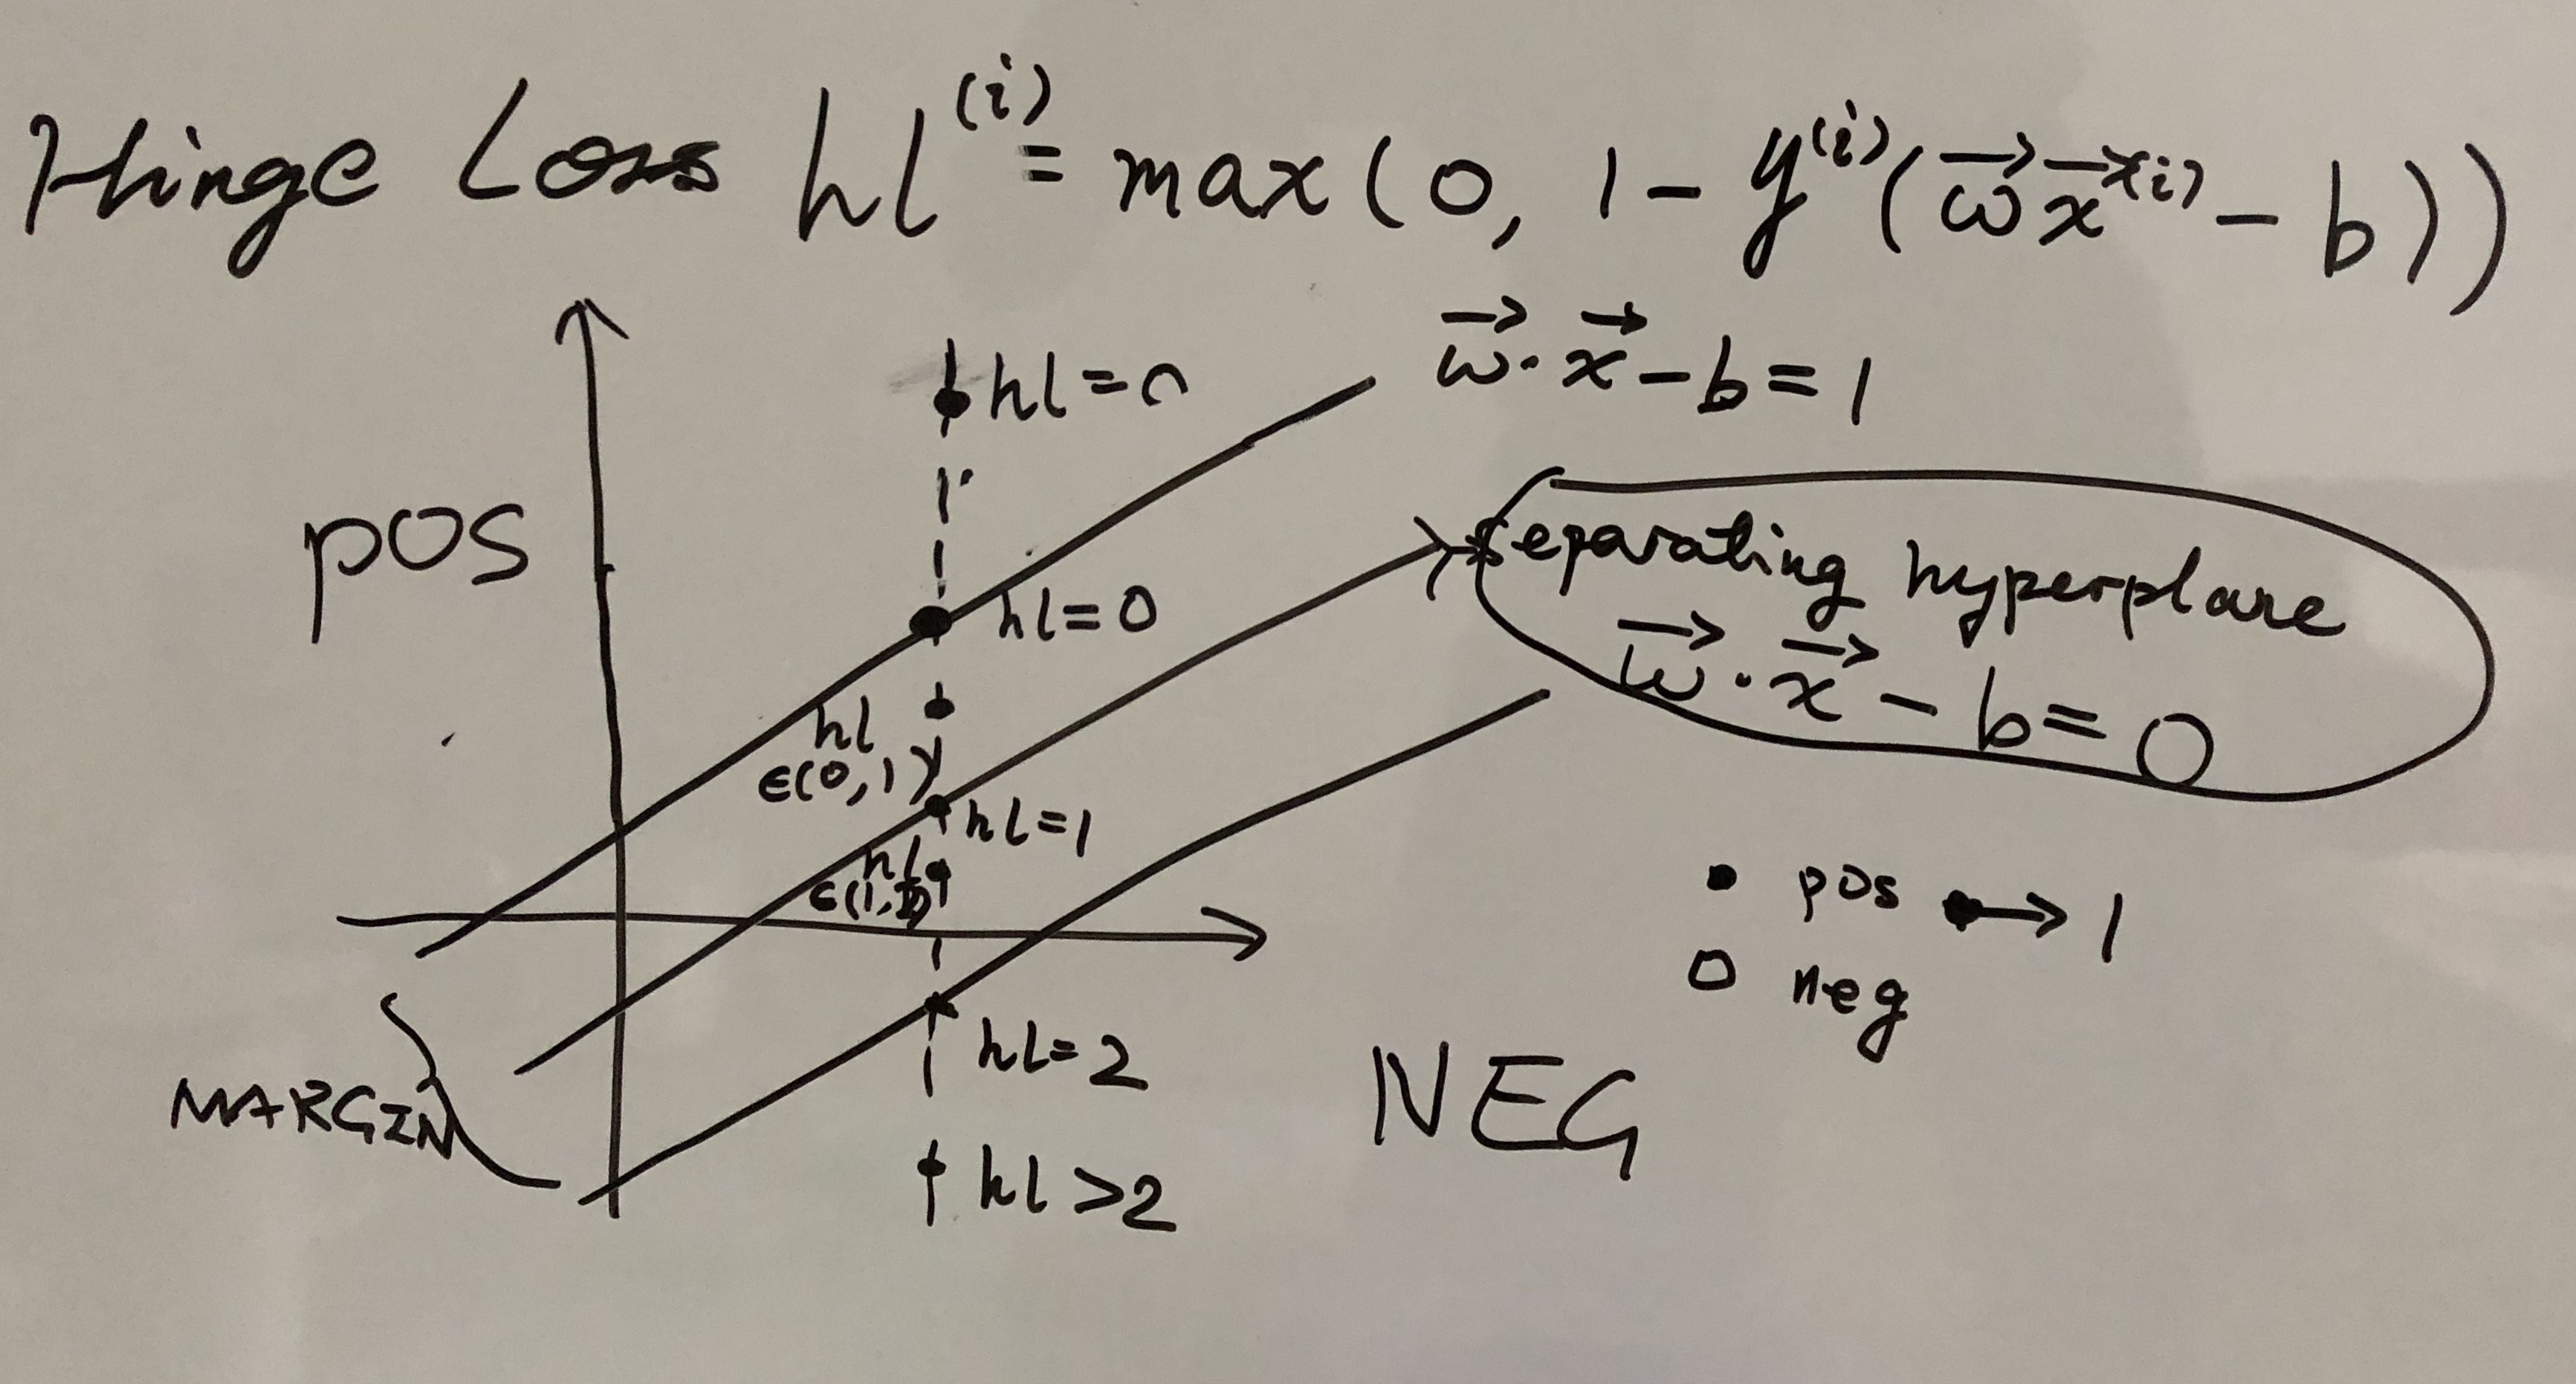 Hinge Loss hl⁽ⁱ⁾ = max(0, 1 − y⁽ⁱ⁾(w⃗ x⃗⁽ⁱ⁾ − b))
hl = 0
w⃗ · x⃗ − b = 1
pos
separating hyperplane
w⃗ · x⃗ − b = 0
hl = 0
hl
∈(0, 1)
hl = 1
hl
∈(1, 2)
• pos •→ 1
o neg
hl = 2
MARGIN
NEG
hl > 2